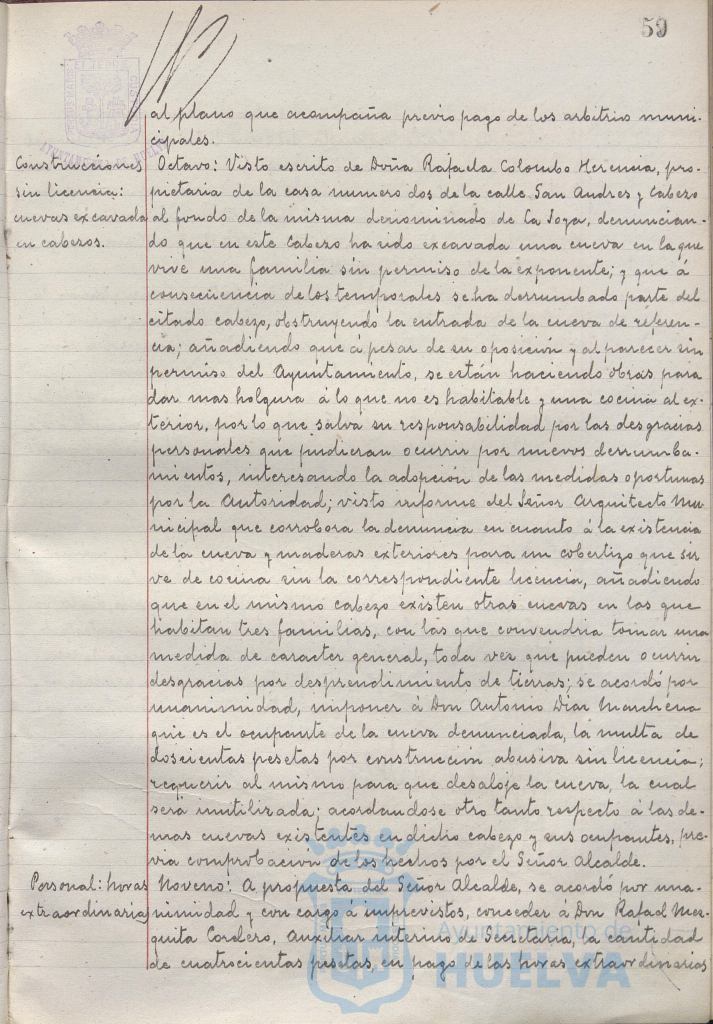 59
al plano que acompaña previo pago de los arbitrios muni-
cipales.
Construcciones
sin licencia:
cuevas excavada
en cabezos.
Octavo: Visto escrito de Doña Rafaela Colombo Herencia, pro-
pietaria de la casa numero dos de la calle San Andres y Cabezo
al fondo de la misma denominado de La Joya, denuncian-
do que en este Cabezo ha sido excavada una cueva en la que
vive una familia sin permiso de la exponente; y que á
consecuencia de los temporales se ha derrumbado parte del
citado cabezo, obstruyendo la entrada de la cueva de referen-
cia; añadiendo que á pesar de su oposición y al parecer sin
permiso del Ayuntamiento, se están haciendo obras para
dar mas holgura á lo que no es habitable y una cocina al ex-
terior, por lo que salva su responsabilidad por las desgracias
personales que pudieran ocurrir por nuevos derrumba-
mientos, interesando la adopción de las medidas oportunas
por la Autoridad; visto informe del Señor Arquitecto Mu-
nicipal que corrobora la denuncia en cuanto á la existencia
de la cueva y maderas exteriores para un cobertizo que sir
ve de cocina sin la correspondiente licencia, añadiendo
que en el mismo cabezo existen otras cuevas en las que
habitan tres familias, con las que convendria tomar una
medida de caracter general, toda vez que pueden ocurrir
desgracias por desprendimiento de tierras; se acordó por
unanimidad, imponer á Don Antonio Diaz Marchena
que es el ocupante de la cueva denunciada, la multa de
doscientas pesetas por construcción abusiva sin licencia;
requerir al mismo para que desaloje la cueva, la cual
será inutilizada; acordandose otro tanto respecto á las de-
mas cuevas existentes en dicho cabezo y sus ocupantes, pre-
via comprobación de los hechos por el Señor Alcalde.
Personal: horas
extraordinarias
Noveno: A propuesta del Señor Alcalde, se acordó por una-
nimidad y con cargo á imprevistos, conceder á Don Rafael Mez-
quita Cordero, Auxiliar interino de Secretaria, la cantidad
de cuatrocientas pesetas, en pago de las horas extraordinarias
Ayuntamiento de
HUELVA